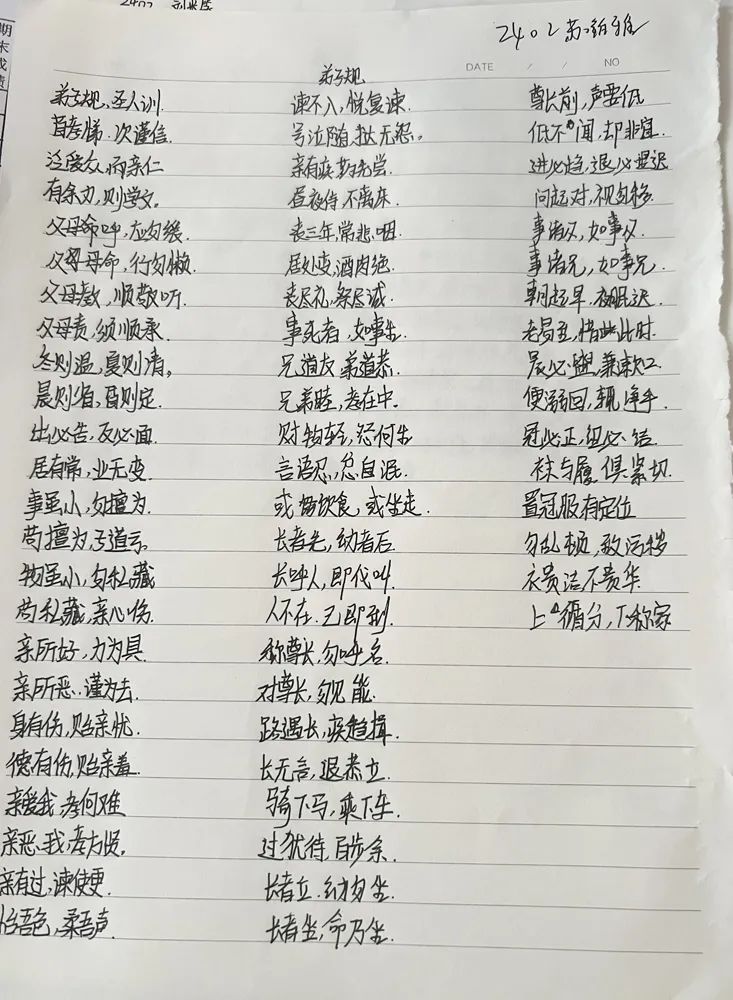 2402
期末成绩
2402 苏珀雅
DATE / / NO
弟子规
弟子规,圣人训.
首孝悌.次谨信
泛爱众,而亲仁
有余力,则学文.
父母命呼,应勿缓.
父母命,行勿懒.
父母教,顺敬听.
父母责,须顺承.
冬则温,夏则清。
晨则省,昏则定.
出必告,反必面
居有常,业无变
事虽小,勿擅为.
苟擅为,子道亏.
物虽小,勿私藏
苟私藏,亲心伤.
亲所好,力为具.
亲所恶.谨为去.
身有伤,贻亲忧.
德有伤,贻亲羞.
亲爱我,孝何难
亲恶我,孝方贤.
亲有过,谏使更
怡吾色,柔吾声.
谏不入,悦复谏.
号泣随,挞无怨。
亲有疾,药先尝.
昼夜侍,不离床.
丧三年,常悲咽.
居处变,酒肉绝.
丧尽礼,祭尽诚.
事死者,如事生.
兄道友,弟道恭.
兄弟睦,孝在中.
财物轻,怨何生
言语忍,忿自泯.
或饮食,或坐走.
长者先,幼者后.
长呼人,即代叫.
人不在.己即到.
称尊长,勿呼名.
对尊长,勿见能.
路遇长,疾趋揖.
长无言,退恭立.
骑下马,乘下车.
过犹待,百步余.
长者立.幼勿坐.
长者坐,命乃坐.
尊长前,声要低
低不闻,却非宜.
进必趋,退必迟
问起对,视勿移.
事诸父,如事父.
事诸兄,如事兄.
朝起早,夜眠迟.
老易至,惜此时.
晨必盥,兼漱口.
便溺回,辄净手.
冠必正,纽必结.
袜与履,俱紧切.
置冠服,有定位
勿乱顿,致污秽
衣贵洁不贵华
上循分,下称家